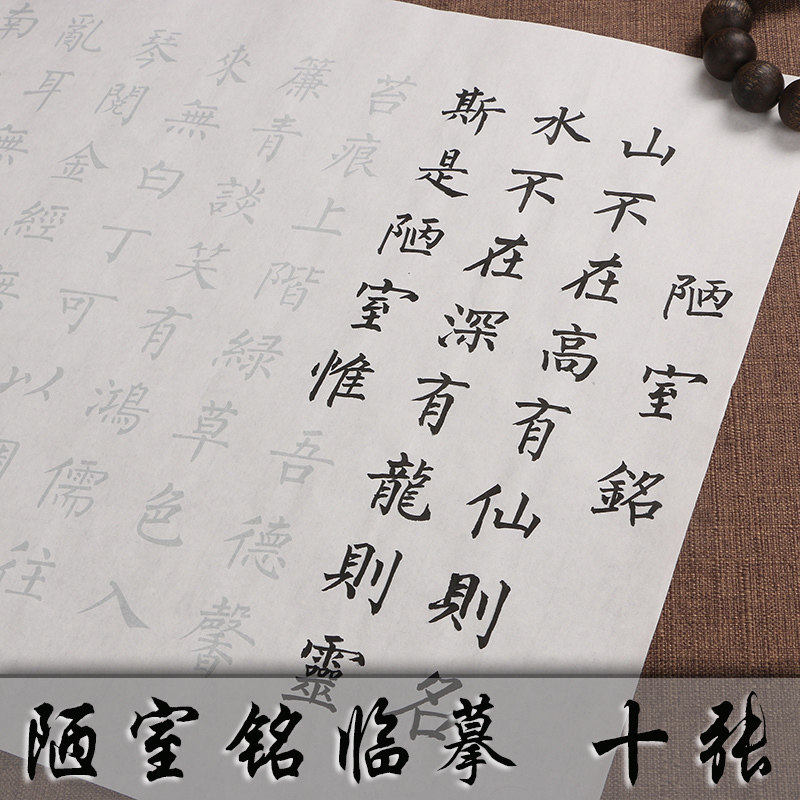 陋室銘
山不在高有仙則名
水不在深有龍則靈
斯是陋室惟吾德馨
苔痕上階緑草色入
簾青談笑有鴻儒往
來無白丁可以調
琴閱金經無
亂耳無
南
陋室铭临摹 十张